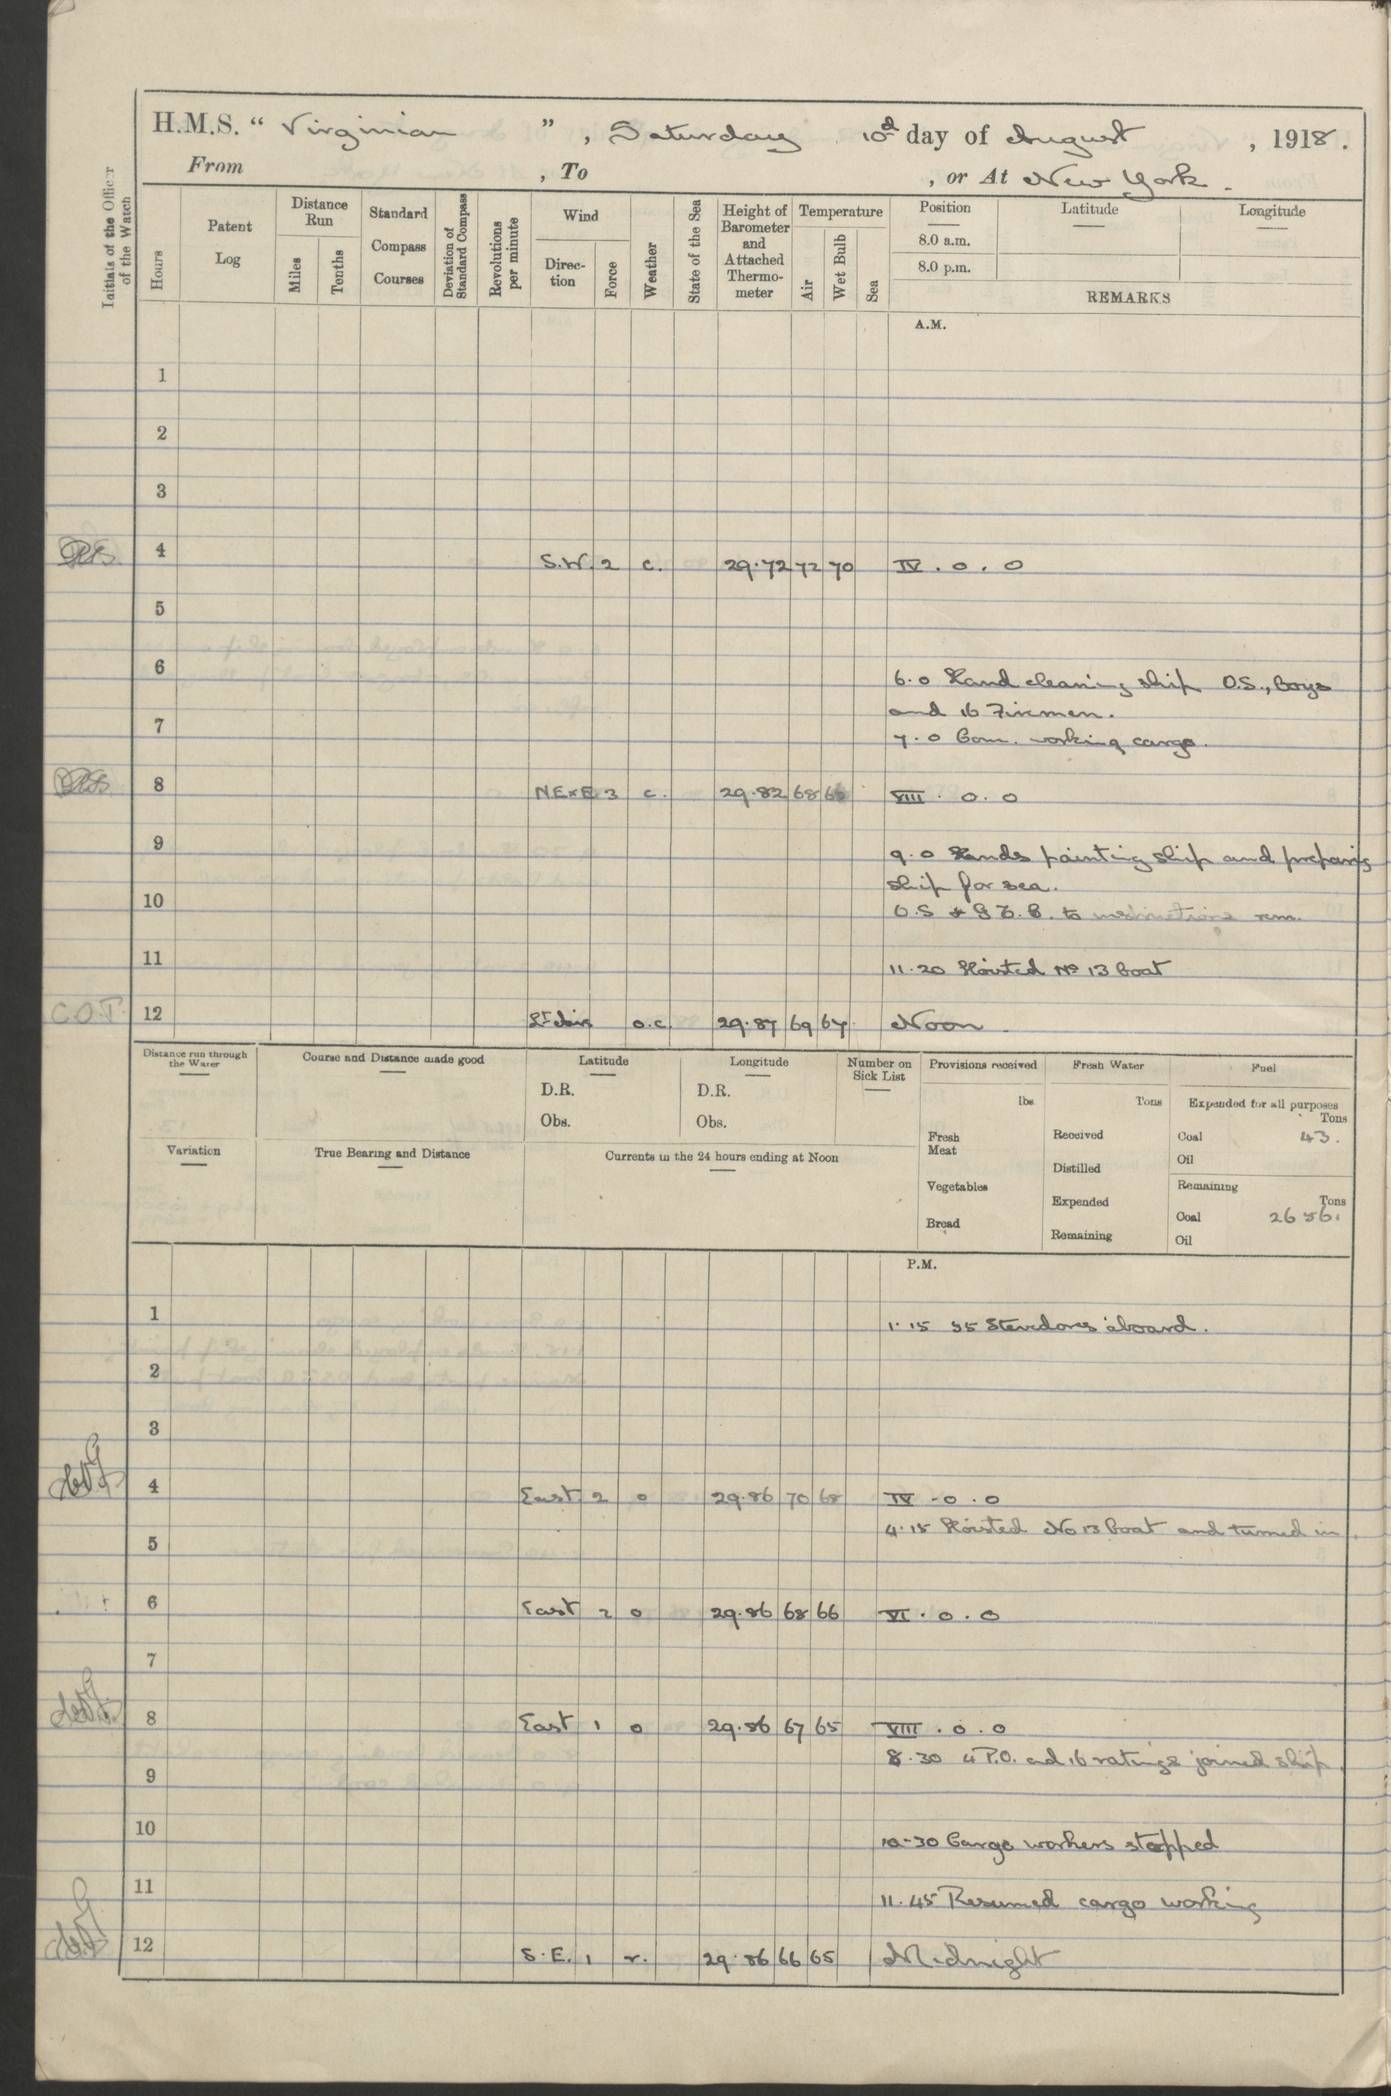 H.M.S. “ Virginian ” , Saturday 10th day of August , 1918.
From , To , or At New York.
Initials of the Officer of the Watch
Hours
Patent Log
Distance Run
Miles
Tenths
Standard Compass Courses
Deviation of Standard Compass
Revolutions per minute
Wind
Direction
Force
Weather
State of the Sea
Height of Barometer and Attached Thermometer
Temperature
Air
Wet Bulb
Sea
Position Latitude Longitude
8.0 a.m.
8.0 p.m.
REMARKS
A.M.
1
2
3
4 S.W. 2 c. 29.72 72 70 IV . 0 . 0
5
6
6.0 Hand cleaning ship O.S., Boys
and 16 Firemen.
7
7.0 Com. working cargo.
8 NExE 3 c. 29.82 68 VIII . 0 . 0
9
9.0 Hands painting ship and preparing
ship for sea.
10
O.S & to instructions rm.
11
11.20 Hoisted No 13 boat
C.O.T. 12 o.c. 29.87 69 67 Noon
Distance run through the Water
Course and Distance made good
Latitude
D.R.
Obs.
Longitude
D.R.
Obs.
Number on Sick List
Provisions received
lbs
Fresh Meat
Vegetables
Bread
Fresh Water
Tons
Received
Distilled
Expended
Remaining
Fuel
Expended for all purposes
Tons
Coal 43.
Oil
Remaining
Tons
Coal 2656.
Oil
Variation
True Bearing and Distance
Currents in the 24 hours ending at Noon
P.M.
1
1.15 35 Stevedores aboard.
2
3
4 East 2 o 29.86 70 68 IV . 0 . 0
4.15 Hoisted No 13 boat and turned in.
5
6 East 2 o 29.86 68 66 VI . 0 . 0
7
8 East 1 o 29.86 67 65 VIII . 0 . 0
8.30 4 P.O. and 16 ratings joined ship.
9
10
10-30 Cargo workers stopped
11
11.45 Resumed cargo working
12 S.E. 1 r. 29.86 66 65 Midnight